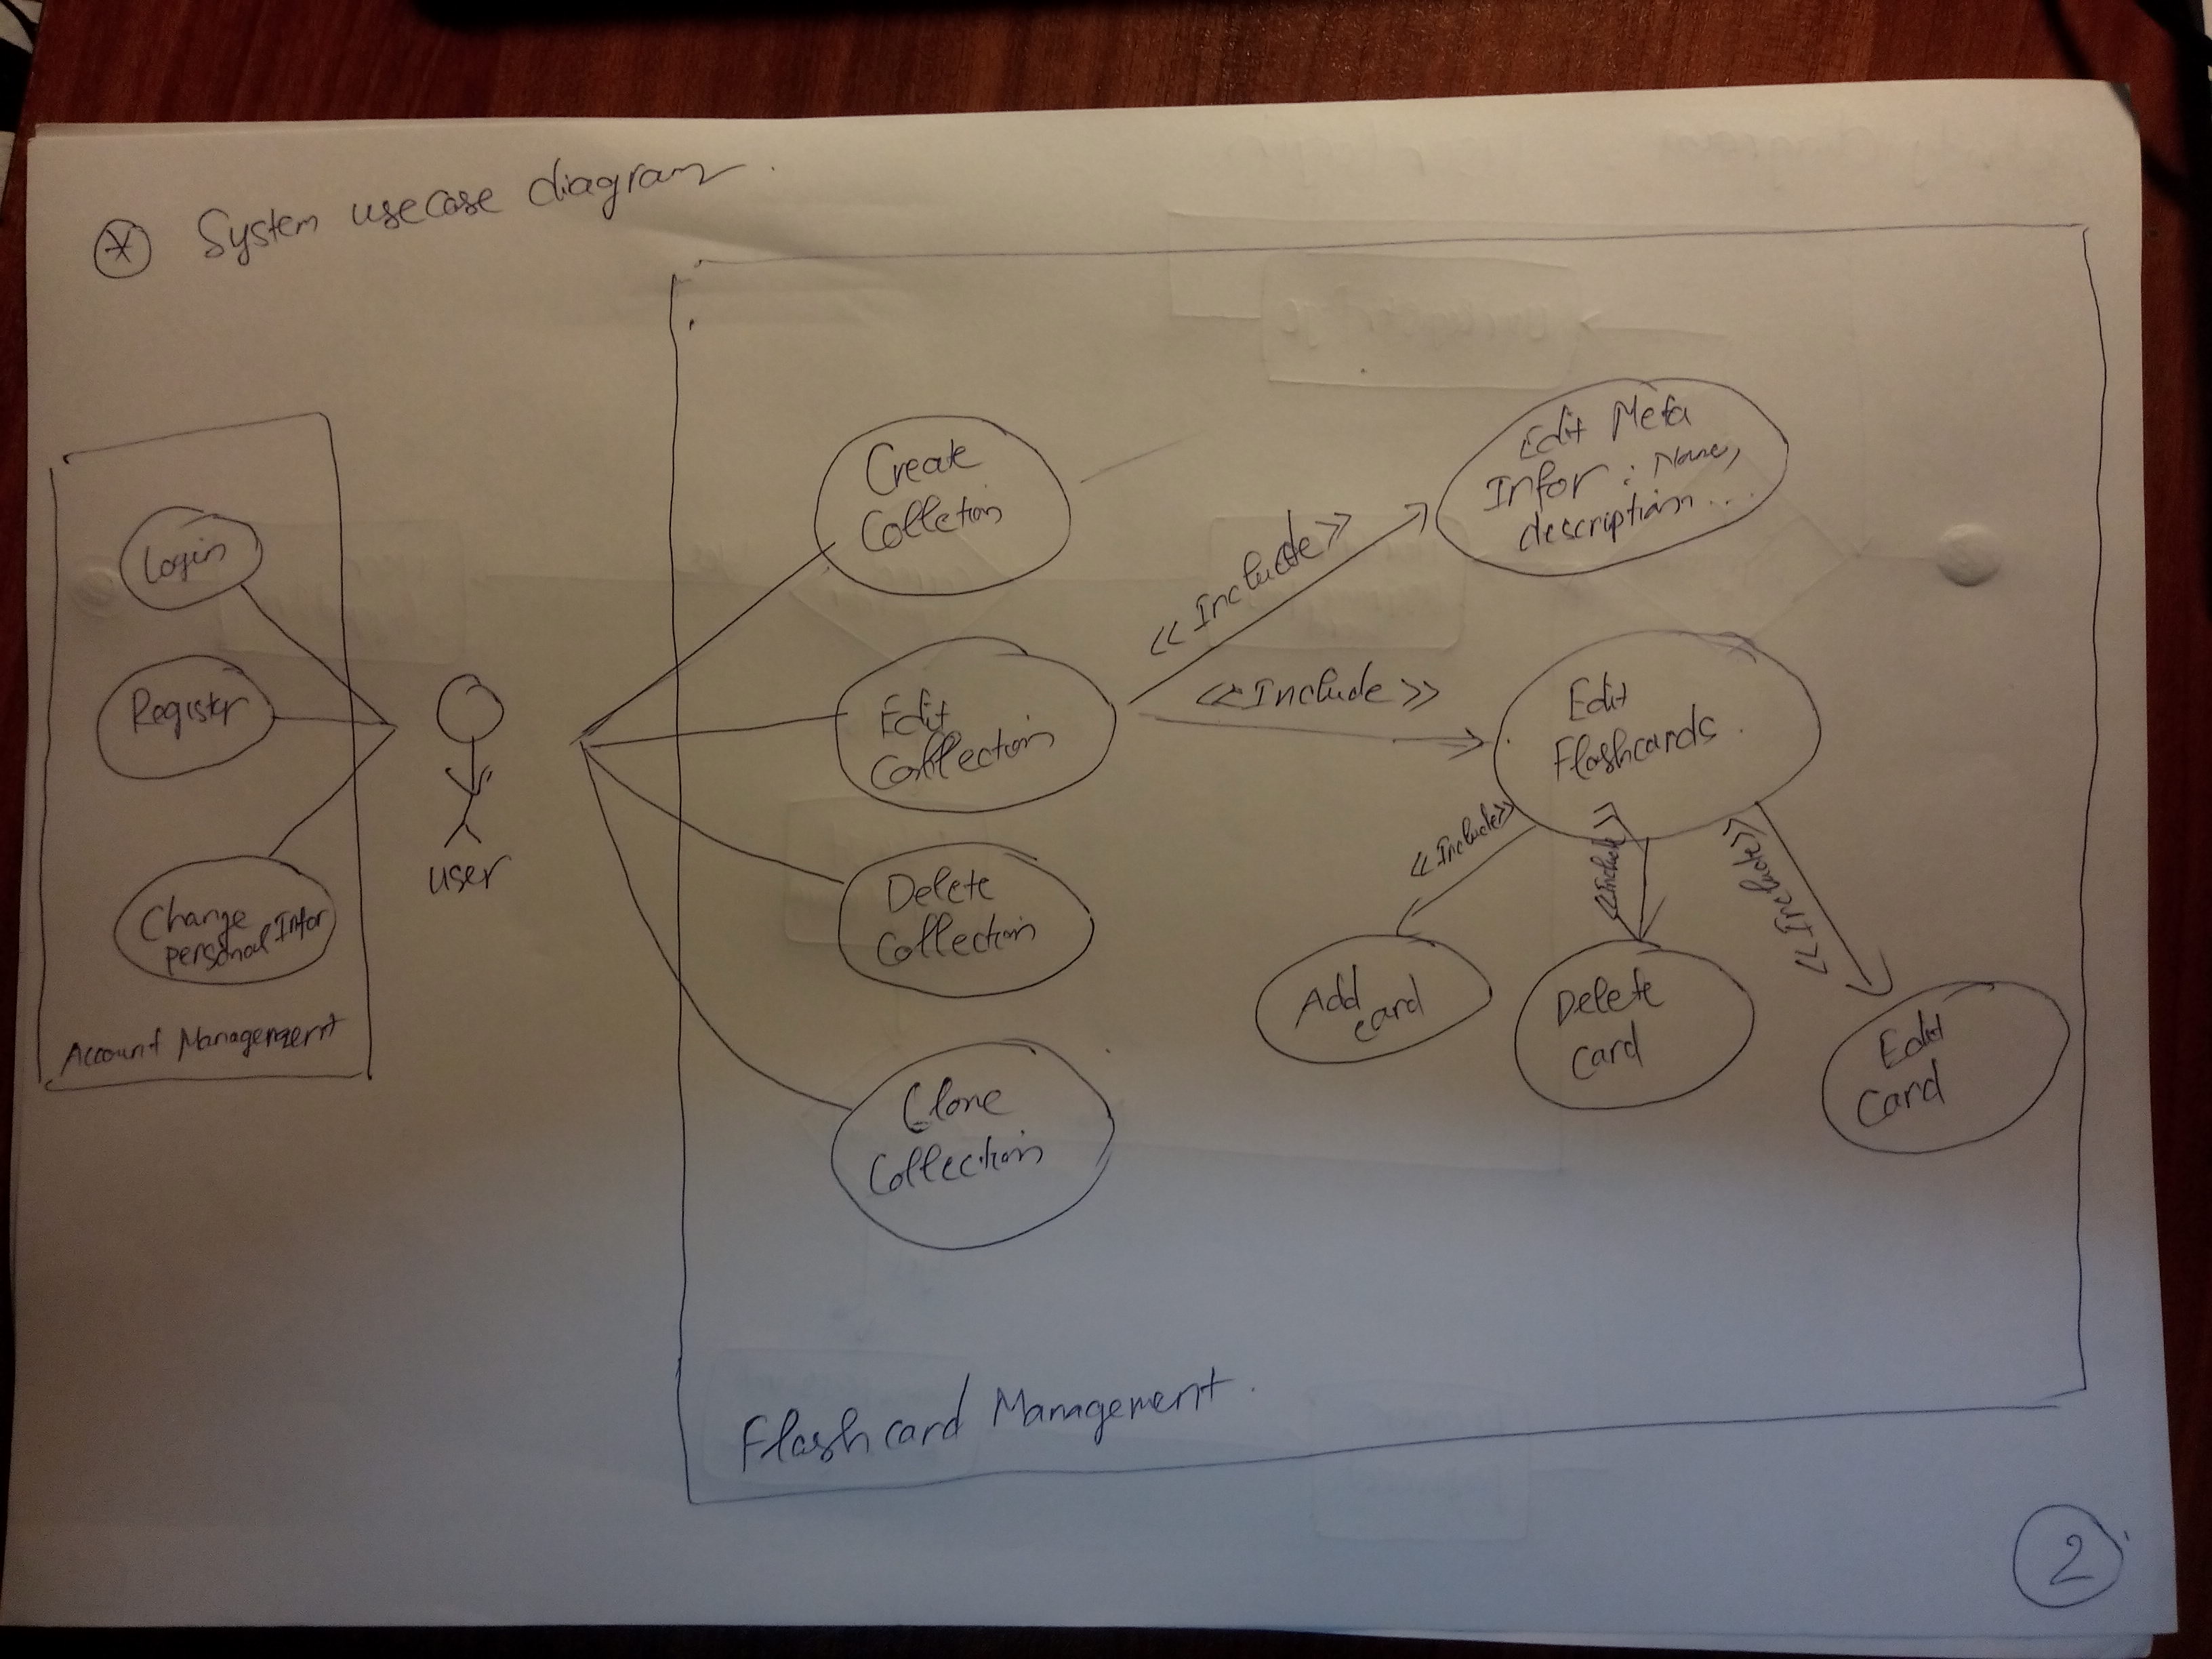 * System usecase diagram.
Login
Register
Change
personal Infor
Account Management
user
Create
Colletion
Edit
Collection
Delete
Collection
Clone
Collection
<<Include>>
Edit Meta
Infor : Name,
description...
<<Include>>
Edit
Flashcards.
<<Include>>
<<Include>>
<<Include>>
Add
card
Delete
Card
Edit
Card
Flashcard Management.
2